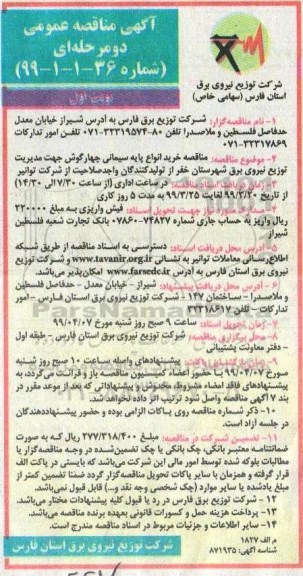 آگهی مناقصه عمومی
دو مرحله‌ای
(شماره ۳۶-۱-۱-۹۹)
نوبت اول
شرکت توزیع نیروی برق
استان فارس (سهامی خاص)
۱- نام مناقصه‌گزار: شرکت توزیع برق فارس به آدرس شیراز خیابان معدل
حدفاصل فلسطین و ملاصدرا تلفن ۸۰-۳۲۳۱۹۵۷۴-۰۷۱ تلفن امور تدارکات
۰۷۱-۳۲۳۱۷۸۶۹
۲- موضوع مناقصه: مناقصه خرید انواع پایه سیمانی چهارگوش جهت مدیریت
توزیع نیروی برق شهرستان خفر از تولیدکنندگان واجدصلاحیت از شرکت توانیر
۳- زمان دریافت اسناد مناقصه: در ساعات اداری (از ساعت ۷/۳۰ الی ۱۴/۳۰)
از تاریخ ۹۹/۳/۲۰ لغایت ۹۹/۳/۲۵ به مدت ۵ روز کاری
۴- مدارک مورد نیاز جهت تحویل اسناد: فیش واریزی به مبلغ ۲۲۰۰۰۰
ریال واریز به حساب جاری شماره ۰۷۸۶۰-۷۴۸۲۷ بانک تجارت شعبه فلسطین
شیراز
۵- آدرس محل دریافت اسناد: دسترسی به اسناد مناقصه از طریق شبکه
اطلاع‌رسانی معاملات توانیر به نشانی www.tavanir.org.ir و شرکت توزیع
نیروی برق استان فارس به آدرس www.farsedc.ir امکان‌پذیر می‌باشد.
۶- آدرس محل دریافت پیشنهادات: شیراز - خیابان معدل - حدفاصل فلسطین
و ملاصدرا - ساختمان ۱۴۷ - شرکت توزیع نیروی برق استان فارس - امور
تدارکات - تلفن ۳۲۳۱۸۶۱۷
۷- زمان تحویل اسناد: ساعت ۹ صبح روز شنبه مورخ ۹۹/۰۴/۰۷
۸- محل برگزاری مناقصه: شرکت توزیع نیروی برق استان فارس - طبقه اول
- دفتر معاونت پشتیبانی
۹- پیشنهادهای واصله ساعت ۱۰ صبح روز شنبه
مورخ ۹۹/۰۴/۰۷ با حضور اعضاء کمیسیون مناقصه باز و قرائت می‌گردد، به
پیشنهادهای فاقد امضاء مشروط، مخدوش و پیشنهاداتی که بعد از موعد مقرر در
بند ۷ آگهی مناقصه واصل شود ترتیب اثر داده نخواهد شد.
۱۰- ذکر شماره مناقصه روی پاکات الزامی بوده و حضور پیشنهاددهندگان
در جلسه آزاد است.
۱۱- تضمین شرکت در مناقصه: مبلغ ۲۷۷/۳۱۸/۴۰۰ ریال که به صورت
ضمانتنامه معتبر بانکی، چک بانکی یا چک تضمین‌شده در وجه مناقصه‌گزار یا
مطالبات بلوکه شده توسط امور مالی این شرکت می‌باشد که بایستی در پاکت الف
قرار گرفته و همزمان با سایر پاکات تحویل مناقصه‌گزار گردد ضمناً تضمین کمتر از
مبلغ یادشده یا سایر موارد (چک شخصی وجه نقد و...) قابل قبول نمی‌باشد.
۱۲- شرکت توزیع برق فارس در رد یا قبول کلیه پیشنهادات مختار می‌باشد.
۱۳- پرداخت هزینه حمل و کسورات قانونی بعهده برنده مناقصه می‌باشد.
۱۴- سایر اطلاعات و جزئیات مربوط در اسناد مناقصه مندرج است.
م الف ۱۸۲۷
شناسه آگهی: ۸۷۱۹۳۵
شرکت توزیع نیروی برق استان فارس